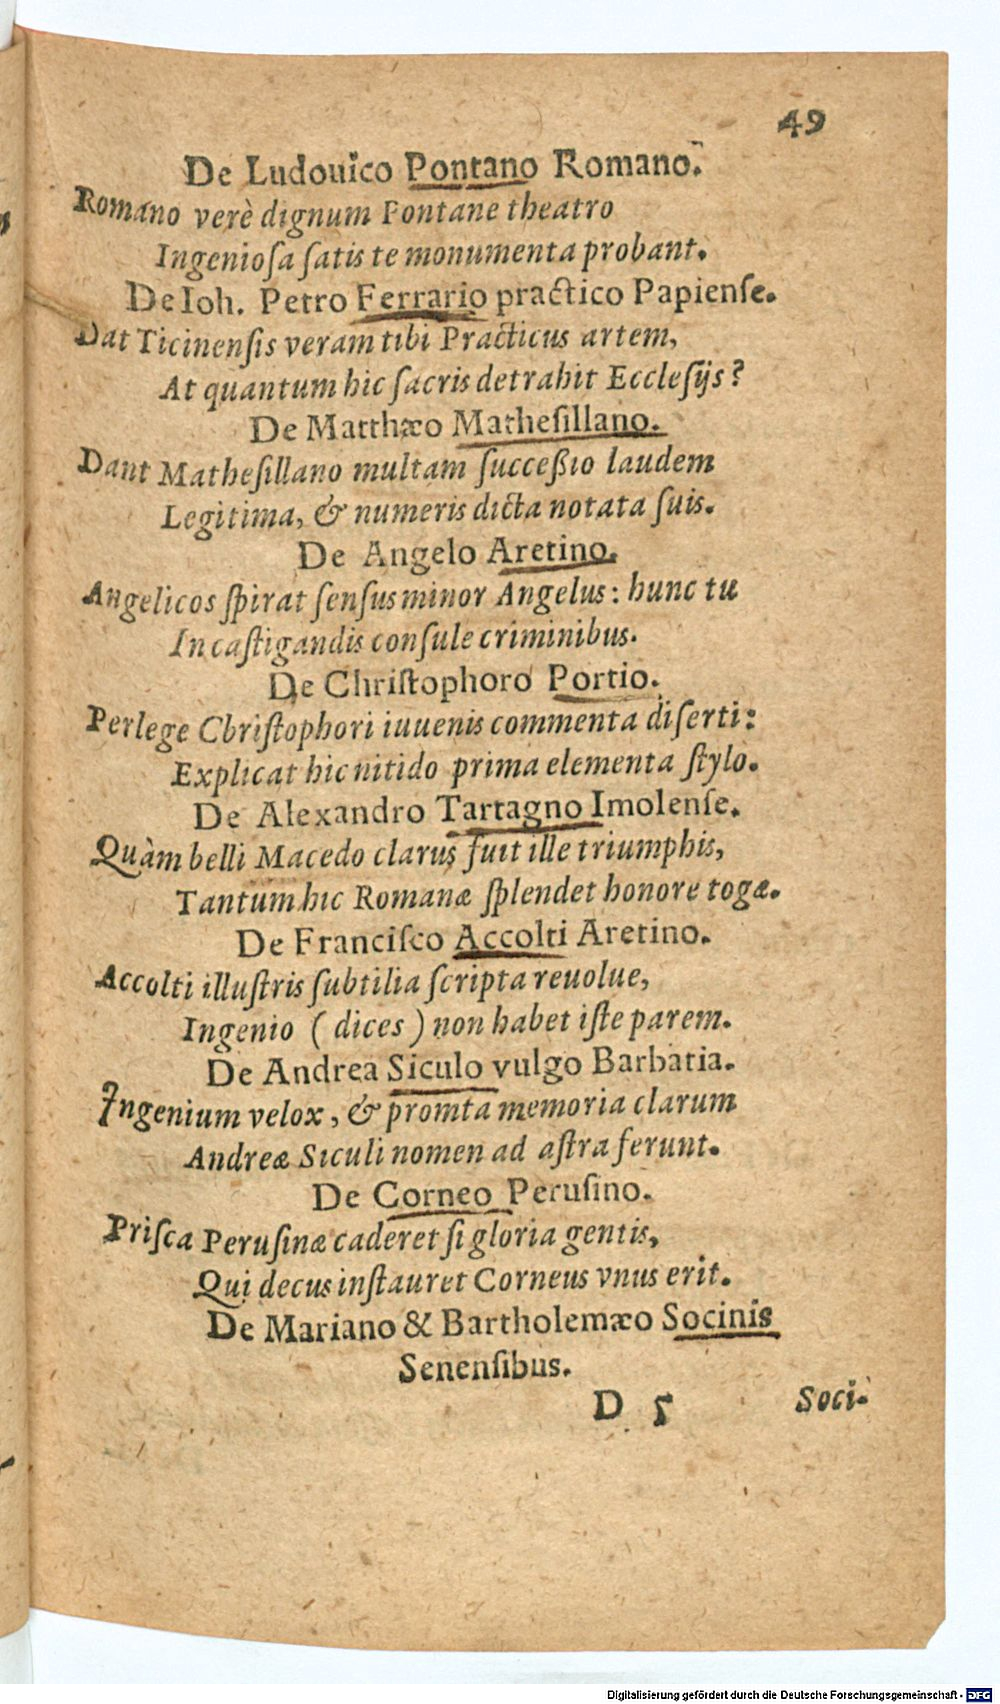 49
De Ludouico Pontano Romano.
Romano verè dignum Pontane theatro
Ingeniosa satis te monumenta probant.
De Ioh. Petro Ferrario practico Papiense.
Dat Ticinensis veram tibi Practicus artem,
At quantum hic sacris detrahit Ecclesijs?
De Matthæo Mathesillano.
Dant Mathesillano multam succeßio laudem
Legitima, & numeris dicta notata suis.
De Angelo Aretino.
Angelicos spirat sensus minor Angelus: hunc tu
In castigandis consule criminibus.
De Christophoro Portio.
Perlege Christophori iuuenis commenta diserti:
Explicat hic nitido prima elementa stylo.
De Alexandro Tartagno Imolense.
Quàm belli Macedo clarus fuit ille triumphis,
Tantum hic Romanæ splendet honore togæ.
De Francisco Accolti Aretino.
Accolti illustris subtilia scripta reuolue,
Ingenio (dices) non habet iste parem.
De Andrea Siculo vulgo Barbatia.
Ingenium velox, & promta memoria clarum
Andreæ Siculi nomen ad astra ferunt.
De Corneo Perusino.
Prisca Perusinæ caderet si gloria gentis,
Qui decus instauret Corneus vnus erit.
De Mariano & Bartholemæo Socinis
Senensibus.
D 5 Soci-
Digitalisierung gefördert durch die Deutsche Forschungsgemeinschaft - DFG